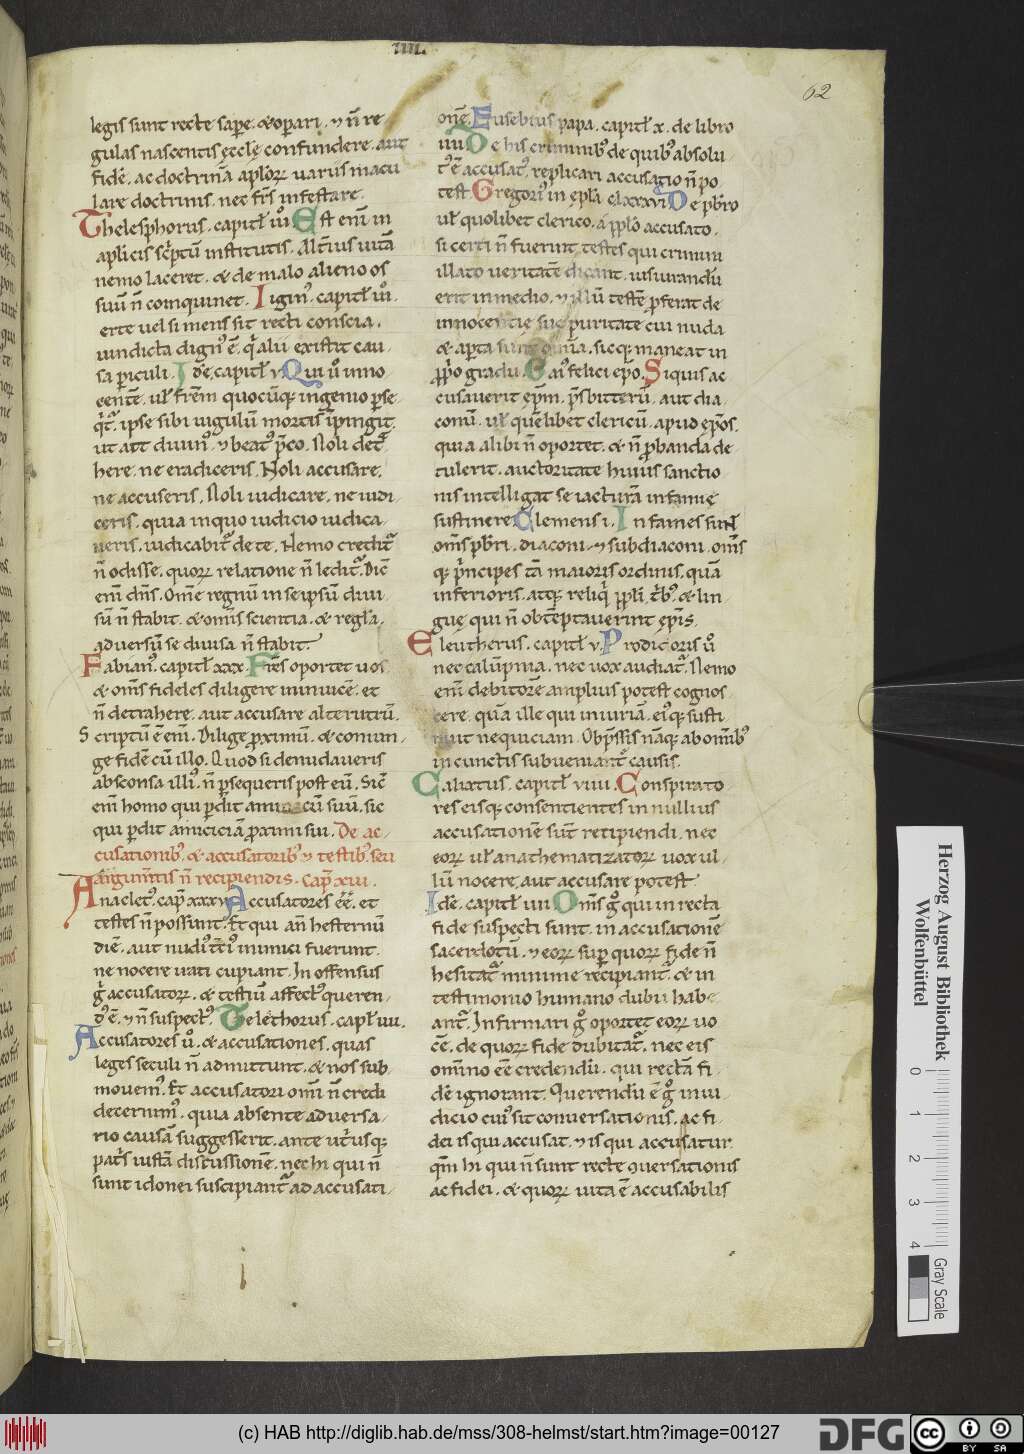 IIII.
62
legis sunt recte sapere. & operari. ⁊ n̄ re
gulas nascentis ęcclę confundere. aut
fidē. ac doctrinā aplorꝝ uariis macu
lare doctrinis. nec frīs infestare.
Thelesphorus. capitł iiii Est enī in
aplicis scptū institutis. Alterius uitā
nemo laceret. & de malo alieno os
suū n̄ coinquinet. Igin'. capitł iii.
erte uel si mens sit recti conscia.
uindicta dign' ē. q̄ aliū existit cau
sa periculi. Idē capitł v Qui u̅ inno
centē. uł frēm quocūq; ingenio perse
q̄t̄. ipse sibi iugulū mortis īpingit.
ut att diuin'. ⁊ beat' p̄co. Noli det̄
here. ne eradiceris. Noli accusare.
ne accuseris. Noli iudicare. ne iudi
ceris. quia in quo iudicio iudica
ueris. iudicabit̄ de te. Nemo credit̄
n̄ odisse. quorꝝ relatione n̄ ledit̄. Dic̄
enī dn̄s. Omē regnū in se ipsū diui
sū n̄ stabit. & omīs scientia. & regla.
aduersū se diuisa n̄ stabit.
Fabian'. capitł xxx. Frēs oportet uos
& omīs fideles diligere inuicē. et
n̄ detrahere. aut accusare alterutrū.
Scriptū ē enī. Dilige proximū. & coniun
ge fidē cū illo. Quod si denudaueris
absconsa illi'. n̄ persequeris post eū. Sic̄
enī homo qui perdit amicū suū. sic
qui perdit amiciciā proximi sui. De ac
cusationib'. & accusatorib' ⁊ testib'. seu
argum̄tis n̄ recipiendis. Cap̄ xiii.
Anaclet'. cap̄ xxxv Accusatores ēē. et
testes n̄ possunt. Et qui an̄ hesternū
diē. aut nudi' t̄ti' inimici fuerunt.
ne nocere uati cupiant. In offensus
ḡ accusatorꝝ. & testiū affect' queren
d' ē. ⁊ n̄ suspect'. Telethorus. capł iiii.
Accusatores u̅. & accusationes. quas
leges seculi n̄ admittunt. & nos sub
mouem'. Et accusatori omī n̄ credi
decernim'. quia absente aduersa
rio causā suggesserit. ante utriusq;
patis iustā discussionē. nec hi qui n̄
sunt idonei suscipiant̄ ad accusati
onē. Eusebius papa. capitł x. de libro
iiii De his criminib' de quib' absolu
t' ē accusat'. replicari accusatio n̄ po
test. Gregori' in ep̄la clxxxvi De pr̄bro
uł quolibet clerico. a p̄plo accusato.
si certi n̄ fuerint testes qui crimini
illato ueritatē dicant. iusiurandū
erit in medio. ⁊ illū testē perferat de
innocentię suę puritate cui nuda
& aperta sunt omīa. sicq; maneat in
proprio gradu. Gai' felici ep̄o. Siquis ac
cusauerit ep̄m. p̄sbiterū. aut dia
conū. uł quēlibet clericū. apud ep̄os.
quia alibi n̄ oportet. & n̄ probanda de
tulerit. auctoritate huius sanctio
nis intelligat se iacturā infamię
sustinere. Clemens i. Infames sunt
omīs pr̄bri. diaconi. ⁊ subdiaconi. omīs
q; p̄ncipes tā maioris ordinis. quā
inferioris. atq; reliqi p̄pli. t̄b'. & lin
guę qui n̄ obtēptauerint ep̄is.
Eleutherus. capitł v. Proditoris u̅
nec calūpnia. nec uox audiat̄. Nemo
enī debitorē amplius potest cognos
cere. quā ille qui iniuriā. ei'q; susti
nuit nequiciam. Obp̄ssis nāq; ab omīb'
in cunctis subueniant̄ causis.
Calixtus. capitł viiii. Conspirato
res eisq; consentientes in nullius
accusationē sunt recipiendi. nec
eorꝝ uł anathematizatorꝝ uox ul
lū nocere. aut accusare potest.
Idē. capitł iiii Omīs ḡ qui in recta
fide suspecti sunt. in accusationē
sacerdotū. ⁊ eorꝝ super quorꝝ fide n̄
hesitat̄ minime recipiant̄. & in
testimonio humano dubii habe
ant̄. Infirmari ḡ oportet eorꝝ uo
cē. de quorꝝ fide dubitat̄. nec eis
omīno ēē credendū. qui rectā fi
dē ignorant. Querendū ē ḡ in iu
dicio cui' sit conuersationis. ac fi
dei is qui accusat. ⁊ is qui accusatur.
qm̄ hi qui n̄ sunt recte ꝯuersationis
ac fidei. & quorꝝ uita ē accusabilis
Herzog August Bibliothek
Wolfenbüttel
0 1 2 3 4
Gray Scale
(c) HAB http://diglib.hab.de/mss/308-helmst/start.htm?image=00127
DFG
cc BY SA